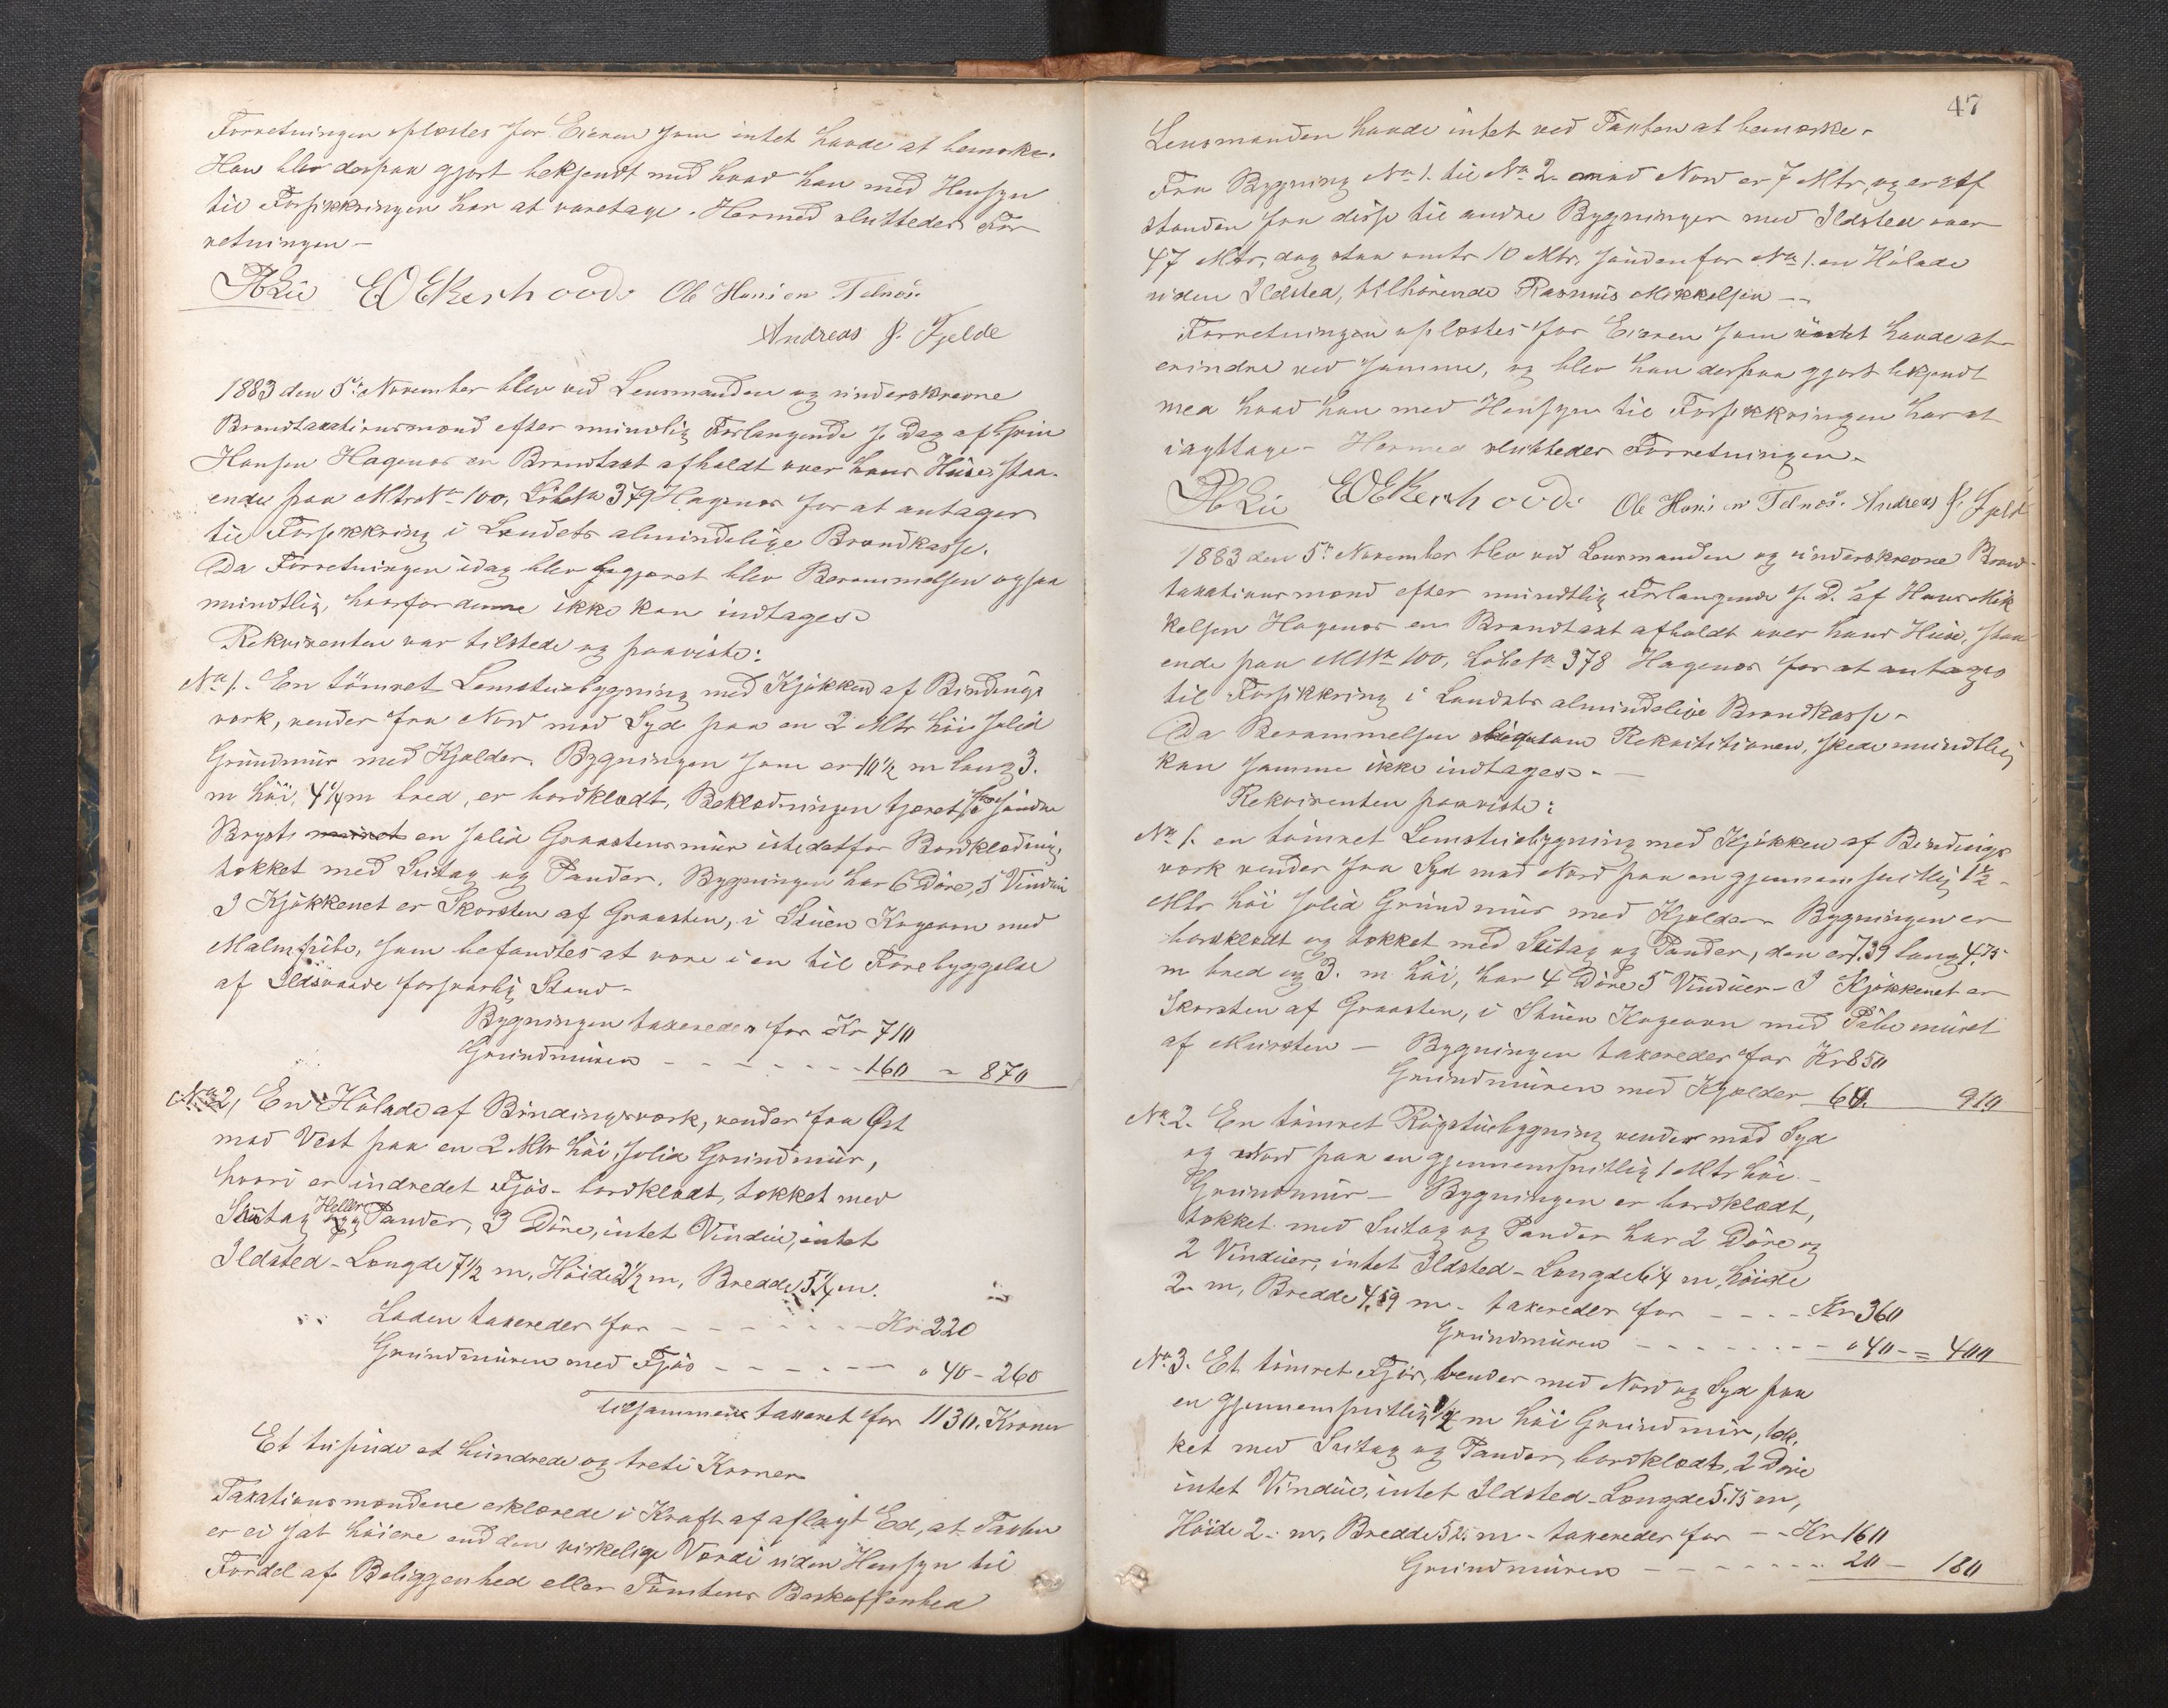 Forretningen oplæstes for Eieren som intet havde at bemærke.
Han blev derpaa gjort bekjendt med hvad han med Hensyn
til Forsikkringen har at varetage. Hermed sluttedes For-
retningen -
EOEkerhoovd. Ole Hansen Telnæs.
Andreas J. Fjelde
1883 den 5te November blev ved Lensmanden og underskrevne
Brandtaxationsmænd efter mundtlig Forlangende s. Dag af
Hansen Hagenæs en Brandtaxt afholdt over hans Huse, staa-
ende paa MtrNo 100, LöbeNo 379 Hagenæs for at antages
til Forsikkring i Landets almindelige Brandkasse.
Da Forretningen idag blev begjæret blev Berammelsen ogsaa
mundtlig, hvorfor denne ikke kan indtages.
Rekvirenten var tilstede og paaviste:
No 1. En tömret Lemstuebygning med Kjökken af Bindings
værk, vender fra Nord mod Syd paa en 2 Mtr höi solid
Grundmur med Kjelder. Bygningen som er 10 1/2 m lang 3.
m höi, 4 1/4 m bred, er bordklædt, Beklædningen tjæret, söndre
Bryst en solid Graastensmur istedetfor Bordklædning,
tækket med Sutag og Pander. Bygningen har 6 Döre, 5 Vinduer
I Kjökkenet er Skorsten af Graasten, i Stuen Kogeovn med
Malmpibe, som befandtes at være i en til Forebyggelse
af Ildsvaade forsvarlig Stand -
Bygningen taxeredes for Kr 710
Grundmuren - - - - - - - 160 = 870
No 2, En Hölade af Bindingsværk, vender fra Öst
mod Vest paa en 2 Mtr höi, solid Grundmur,
hvori er indredet Fjös - bordklædt, tækket med
Sutag Heller og Pander, 3 Döre, intet Vindue, intet
Ildsted - Længde 7 1/2 m, Höide 2 1/2 m, Bredde 5 1/4 m.
Laden taxeredes for - - - - - - - Kr 220
Grundmuren med Fjös - - - - - - " 40 - 260
tilsammens taxeret for 1130. Kroner
Et tusinde et hundrede og treti Kroner
Taxationsmændene erklærede i Kraft af aflagt Ed, at Taxten
er ei sat höiere end den virkelige Værdi uden Hensyn til
Fordel af Beliggenhed eller Tomtens Beskaffenhed
47
Lensmanden havde intet ved Taxten at bemærke -
Fra Bygning No 1. til No 2. mod Nord er 7 Mtr, og er Af
standen fra disse til andre Bygninger med Ildsted over
47 Mtr, dog staa omtr 10 Mtr. söndenfor No 1. en Hölade
uden Ildsted, tilhörende Rasmus Mikkelsen --
Forretningen oplæstes for Eieren som intet havde at
erindre ved samme, og blev han derpaa gjort bekjendt
med hvad han med Hensyn til Forsikkringen har at
iagttage - Hermed sluttedes Forretningen -
EOEkerhoovd. Ole Hansen Telnæs. Andreas J. Fjeld
1883 den 5te November blev ved Lensmanden og underskrevne Brand-
taxationsmænd efter mundtlig Forlangende s. D. af Hans Mik
kelsen Hagenæs en Brandtaxt afholdt over hans Huse, staa
ende paa MNo 100, LöbeNo 378 Hagenæs for at antages
til Forsikkring i Landets almindelige Brandkasse -
Da Berammelsen ligesom Rekvisitionen, skede mundtlig
kan samme ikke indtages. -
Rekvirenten paaviste:
No 1. en tömret Lemstuebygning med Kjökken af Bindings
værk vender fra Syd mod Nord paa en gjennemsnitlig 1 1/2 -
Mtr höi solid Grundmur med Kjelder - Bygningen er
bordklædt og tækket med Sutag og Pander, den er 7.39 lang 4.75
m bred og 3. m höi, har 4 Döre 5 Vinduer - I Kjökkenet er
Skorsten af Graasten, i Stuen Kogeovn med Pibe muret
af Mursten - Bygningen taxeredes for Kr 850
Grundmuren med Kjelder 60. 910
No 2. En tömret Rögstuebygning vender mod Syd
og Nord paa en gjennemsnitlig 1 Mtr höi -
Grundmur - Bygningen er bordklædt,
tækket med Sutag og Pander har 2 Döre og
2 Vinduer, intet Ildsted - Længde 6 1/4 m, höide
2 m, Bredde 4.59 m - taxeredes for - - - - Kr 360
Grundmuren - - - - - - - - " 40 - = 400
No 3. Et tömret Fjös, vender mod Nord og Syd paa
en gjennemsnitlig 1/2 m höi Grundmur, tæk-
ket med Sutag og Pander, bordklædt, 2 Döre
intet Vindue, intet Ildsted - Længde 5.75 m,
Höide 2. m, Bredde m - taxeredes for - - Kr 160
Grundmuren - - - - - - - 20 - 180